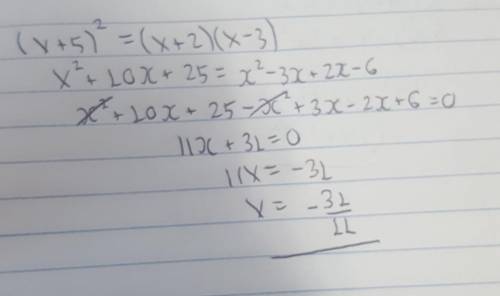 (x+5)² = (x+2)(x-3)
x² + 10x + 25 = x² - 3x + 2x - 6
x² + 10x + 25 - x² + 3x - 2x + 6 = 0
11x + 31 = 0
11x = -31
x = -31/11